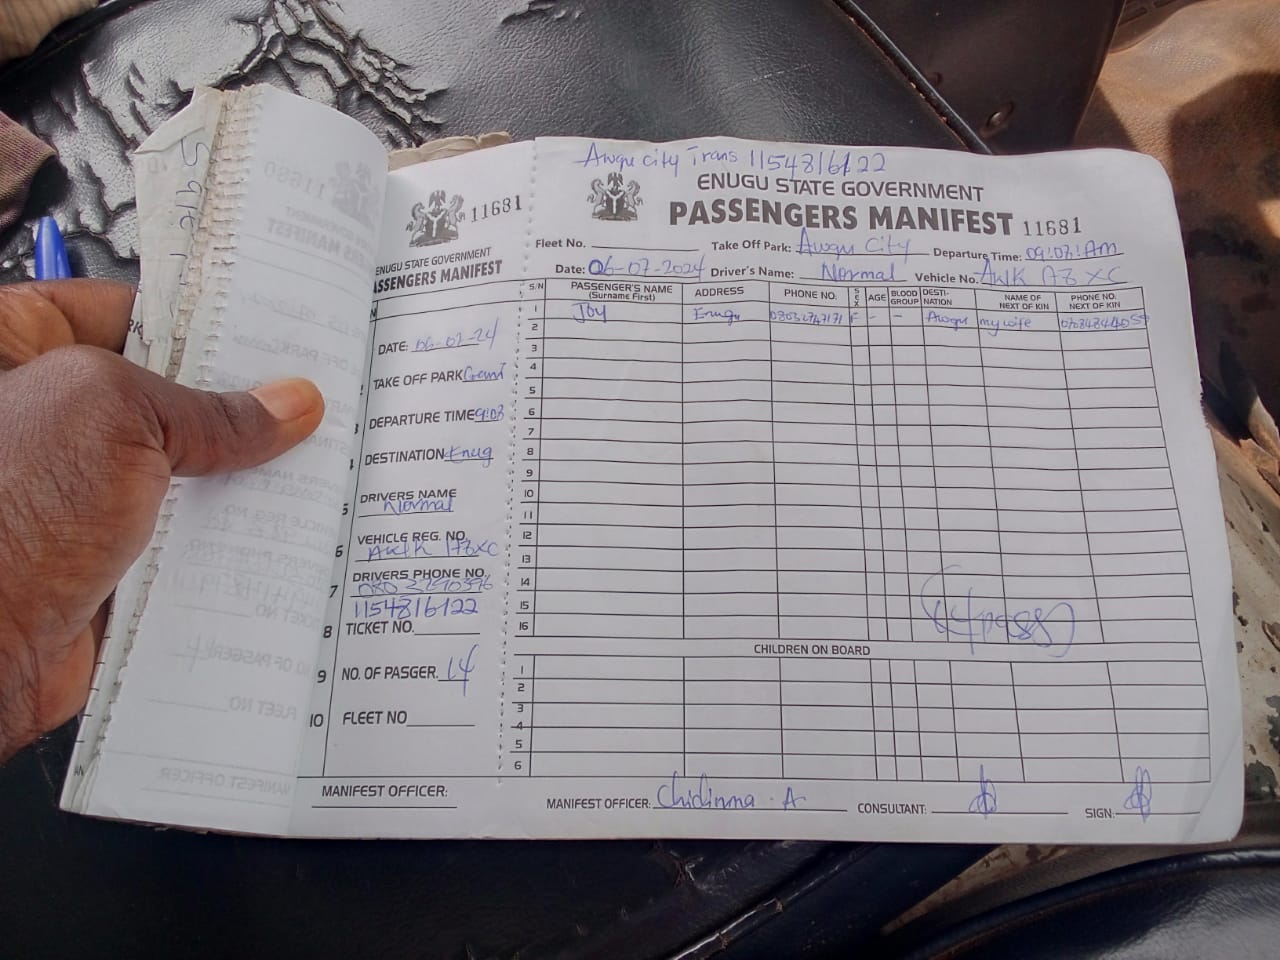 11681
ENUGU STATE GOVERNMENT
PASSENGERS MANIFEST
DATE: 06-07-24
TAKE OFF PARK
DEPARTURE TIME 9:03
DESTINATION Enug
5 DRIVERS NAME
Normal
6 VEHICLE REG. NO.
7 DRIVERS PHONE NO.
1154816122
8 TICKET NO.
9 NO. OF PASGER. 14
10 FLEET NO
MANIFEST OFFICER:
Awgu City Trans 1154816122
ENUGU STATE GOVERNMENT
PASSENGERS MANIFEST 11681
Fleet No. Take Off Park: Awgu City Departure Time: 09:03:Am
Date: 06-07-2024 Driver's Name: Normal Vehicle No. AWK
S/N PASSENGER'S NAME (Surname First) ADDRESS PHONE NO. SEX AGE BLOOD GROUP DESTI-NATION NAME OF NEXT OF KIN PHONE NO. NEXT OF KIN
1 Joy Enugu F - - Awgu my wife
2
3
4
5
6
7
8
9
10
11
12
13
14
15
16
14 pass
CHILDREN ON BOARD
1
2
3
4
5
6
MANIFEST OFFICER: Chidinma . A CONSULTANT: SIGN: